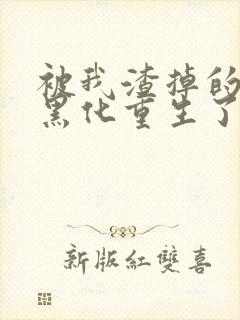 被我渣掉的
黑化重生了
新版紅雙喜